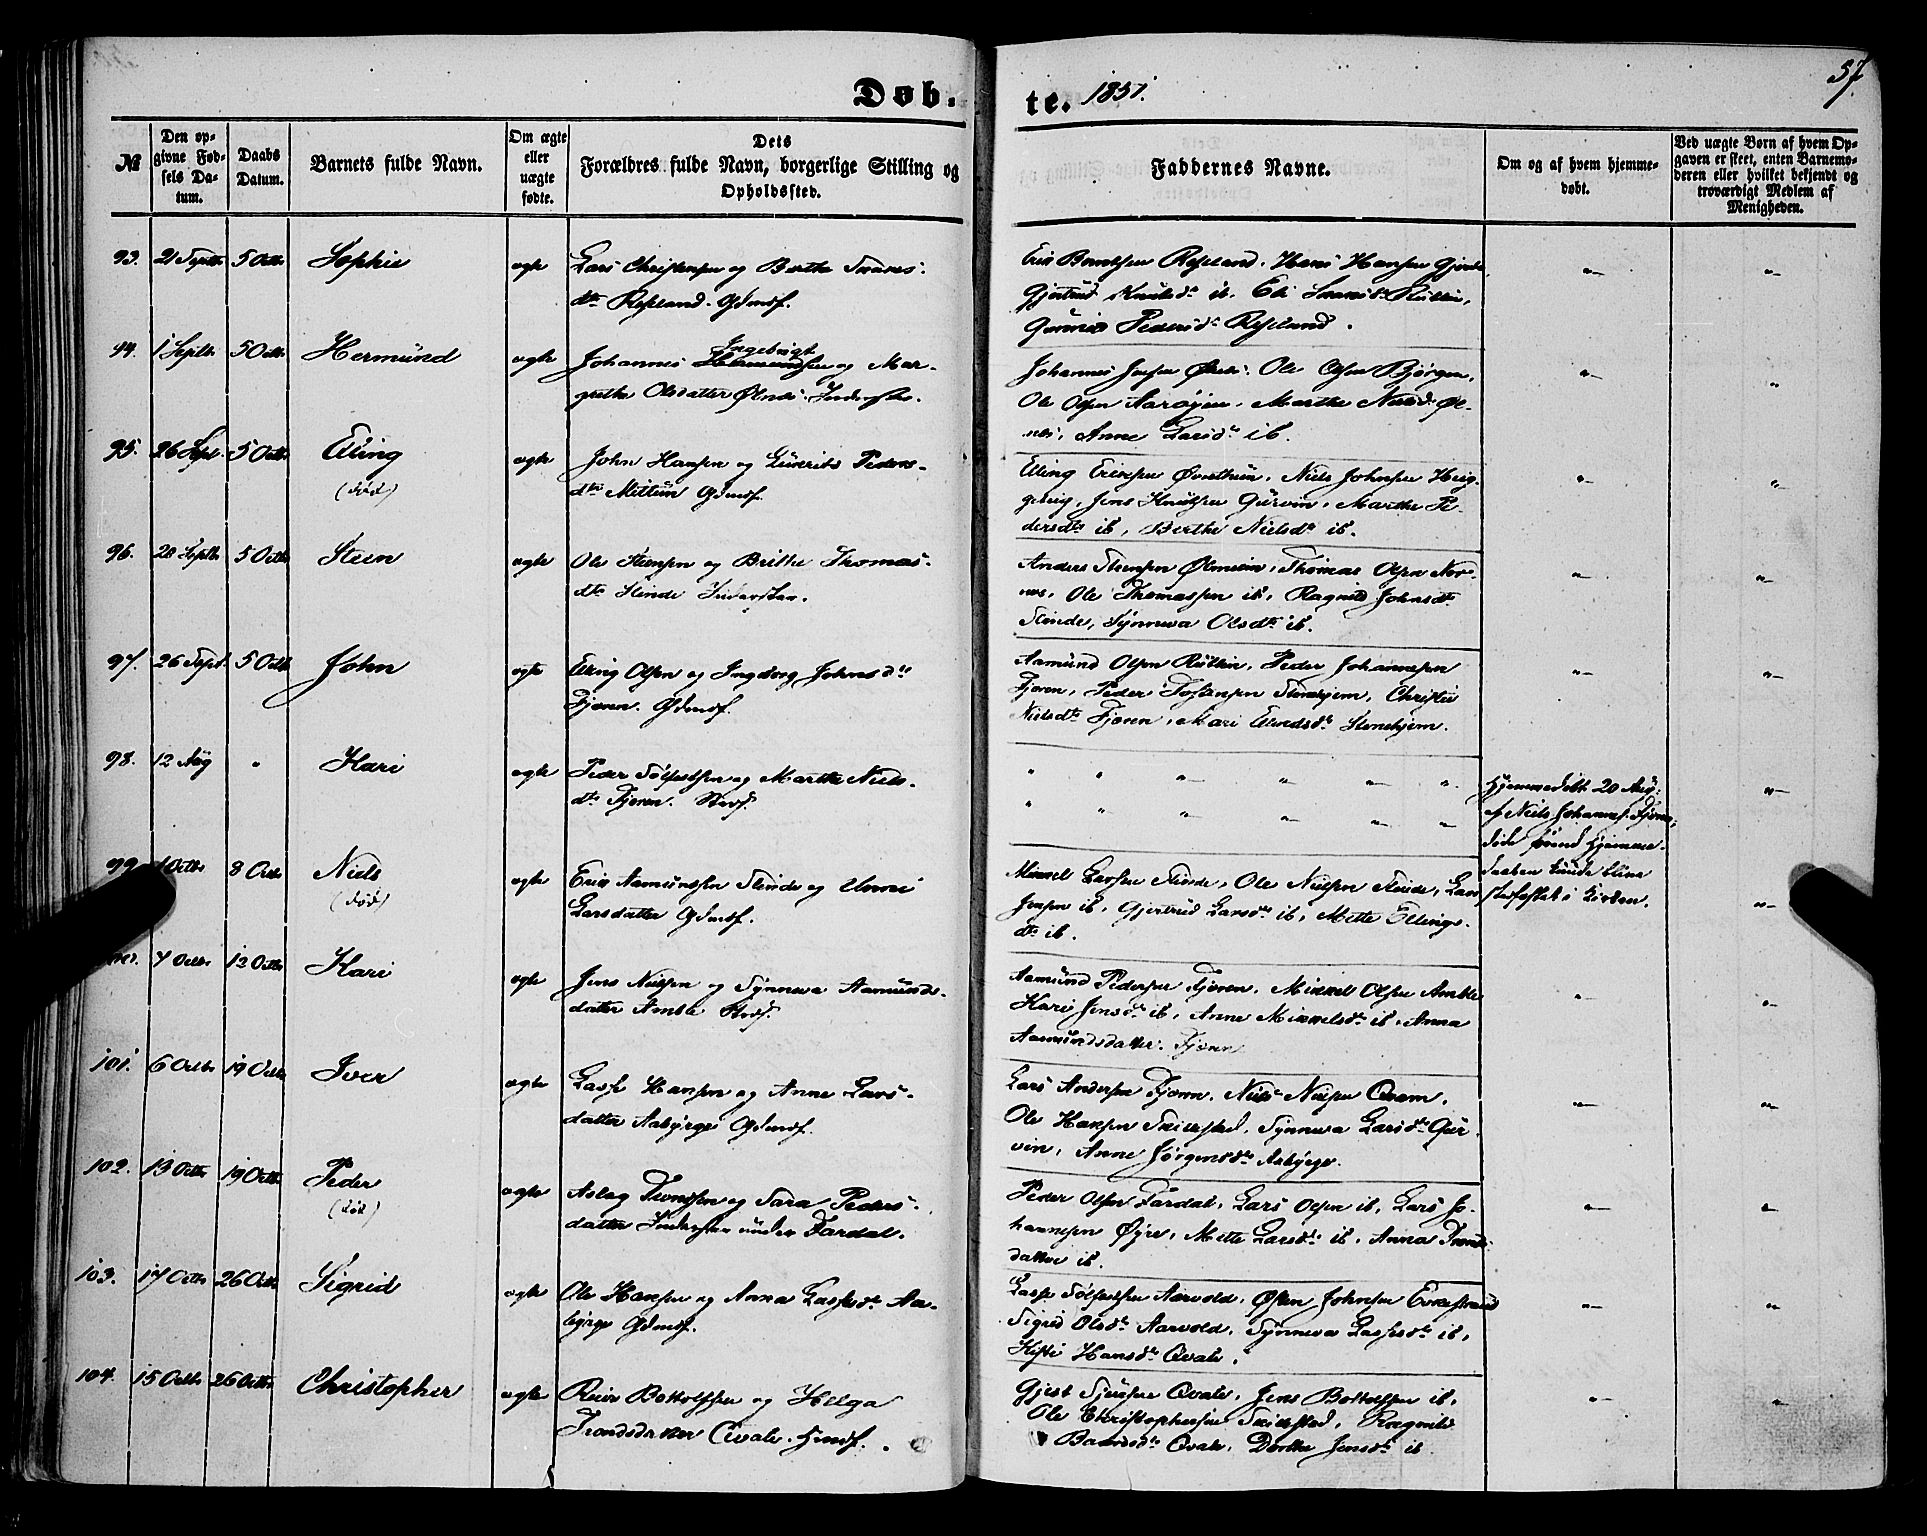 57.
Døb-
te. 1851.
№
Den op-
givne Fød-
sels Da-
tum.
Daabs
Datum.
Barnets fulde Navn.
Om ægte
eller
uægte
fødte.
Dets
Forældres fulde Navn, borgerlige Stilling og
Opholdssted.
Faddernes Navne.
Om og af hvem hjemme-
døbt.
Ved uægte Børn af hvem Op-
gaven er skeet, enten Barnemo-
deren eller hvilket bekjendt og
troværdigt Medlem af
Menigheden.
93. 21 Septb 5 Octb Sophie ægte Lars Christensen og Berthe
dtr Repland. Gdmsf.
Erik Bendtsen Repland. Hans Hansen
Gjertrud Knutsdtr ib. Eli
Pedersdtr Repland.
94. 1 Septb 5 Octb Hermund ægte Johannes Ingebrigtsen og Mar-
grethe Olsdatter Ølnes. Inderster.
Johannes Jensen Ølnes. Ole Olsen Bjørgen,
Ole Olsen Aarøjen, Marthe Nielsdtr Øl-
nes, Anne Larsdtr ib.
95. 26 Sept 5 Octb Elling ægte John Hansen og Peders-
(død)
dtr Mellum Gdmsf.
Elling Eriksen Niels Johnsen Heg-
gevig, Jens Knutsen Gurvin, Marthe Pe-
dersdtr ib, Berthe Nielsdtr ib.
96. 28 Septb 5 Octb Steen ægte Ole Steensen og Brithe Thomas-
dtr Slinde Inderster.
Anders Steensen Thomas Olsen Nor-
nes, Ole Thomassen ib, Ragnild Johnsdtr
Slinde, Synneva Olsdtr ib.
97. 26 Sept. 5 Octb John ægte Elling Olsen og Ingeborg Johnsdtr
Fjæren. Gdmsf.
Aamund Olsen Rutlin, Peder Johannesen
Fjæren, Peder Tostensen Stenehjem, Christie
Nielsdtr Fjæren, Mari Erlendsdtr Stenehjem.
98. 12 Aug " Kari ægte Peder Sølfestsen og Marthe Niels-
dtr Fjæren. Strsf.
Hjemmedøbt 20 Aug:
af Niels Johannes. Fjæren,
døde førend Hjemme-
daaben kunde blive
stadfæstet i Kirken.
99. 1 Octb 8 Octb Niels ægte Erik Aamundsen Slinde og Unni
(død)
Larsdatter Gdmsf.
Mikkel Larsen Slinde, Ole Nielsen Slinde, Lars
Jensen ib, Gjertrud Larsdtr ib, Mette Ellings-
dtr ib.
4 Octb 12 Octb Kari ægte Jens Nielsen og Synneva Aamunds-
datter Amble Strsf.
Aamund Pedersen Fjæren. Mikkel Olsen Amble
Kari Jensdtr ib, Anne Mikkelsdtr ib, Anna
Aamundsdatter. Fjæren
101. 6 Octb 19 Octb Iver ægte Lasse Hansen og Anne Lars-
datter Aabyrge Gdmsf.
Lars Andersen Fjæren. Niels Nielsen Qvam.
Ole Hansen Skikstad, Synneva Larsdtr Gur-
vin, Anne Jørgensdtr Aabyrge.
102. 13 Octb 19 Octb Peder ægte Aslag Trondsen og Sara Peders-
(død)
datter Inderster under Fardal.
Peder Olsen Fardal, Lars Olsen ib, Lars Jo-
hannesen Øyre, Mette Larsdtr ib, Anna Tronds-
datter ib.
103. 17 Octb 26 Octb Sigrid ægte Ole Hansen og Anna Lassesdtr Aa-
byrge Gdmsf.
Lasse Sølfestsen Aarvold, Østen Johnsen
Sigrid Olsdtr Aarvold, Synneva Lassesdtr ib,
Kisti Hansdtr Qvale.
104. 15 Octb 26 Octb Christopher ægte Botolfsen og Helga
Trondsdatter Qvale. Hmsf.
Gjest Qvale, Jens Botolfsen ib,
Ole Christophersen Skikstad, Ragnild
Baardsdtr Qvale, Dorthe Jensdtr ib